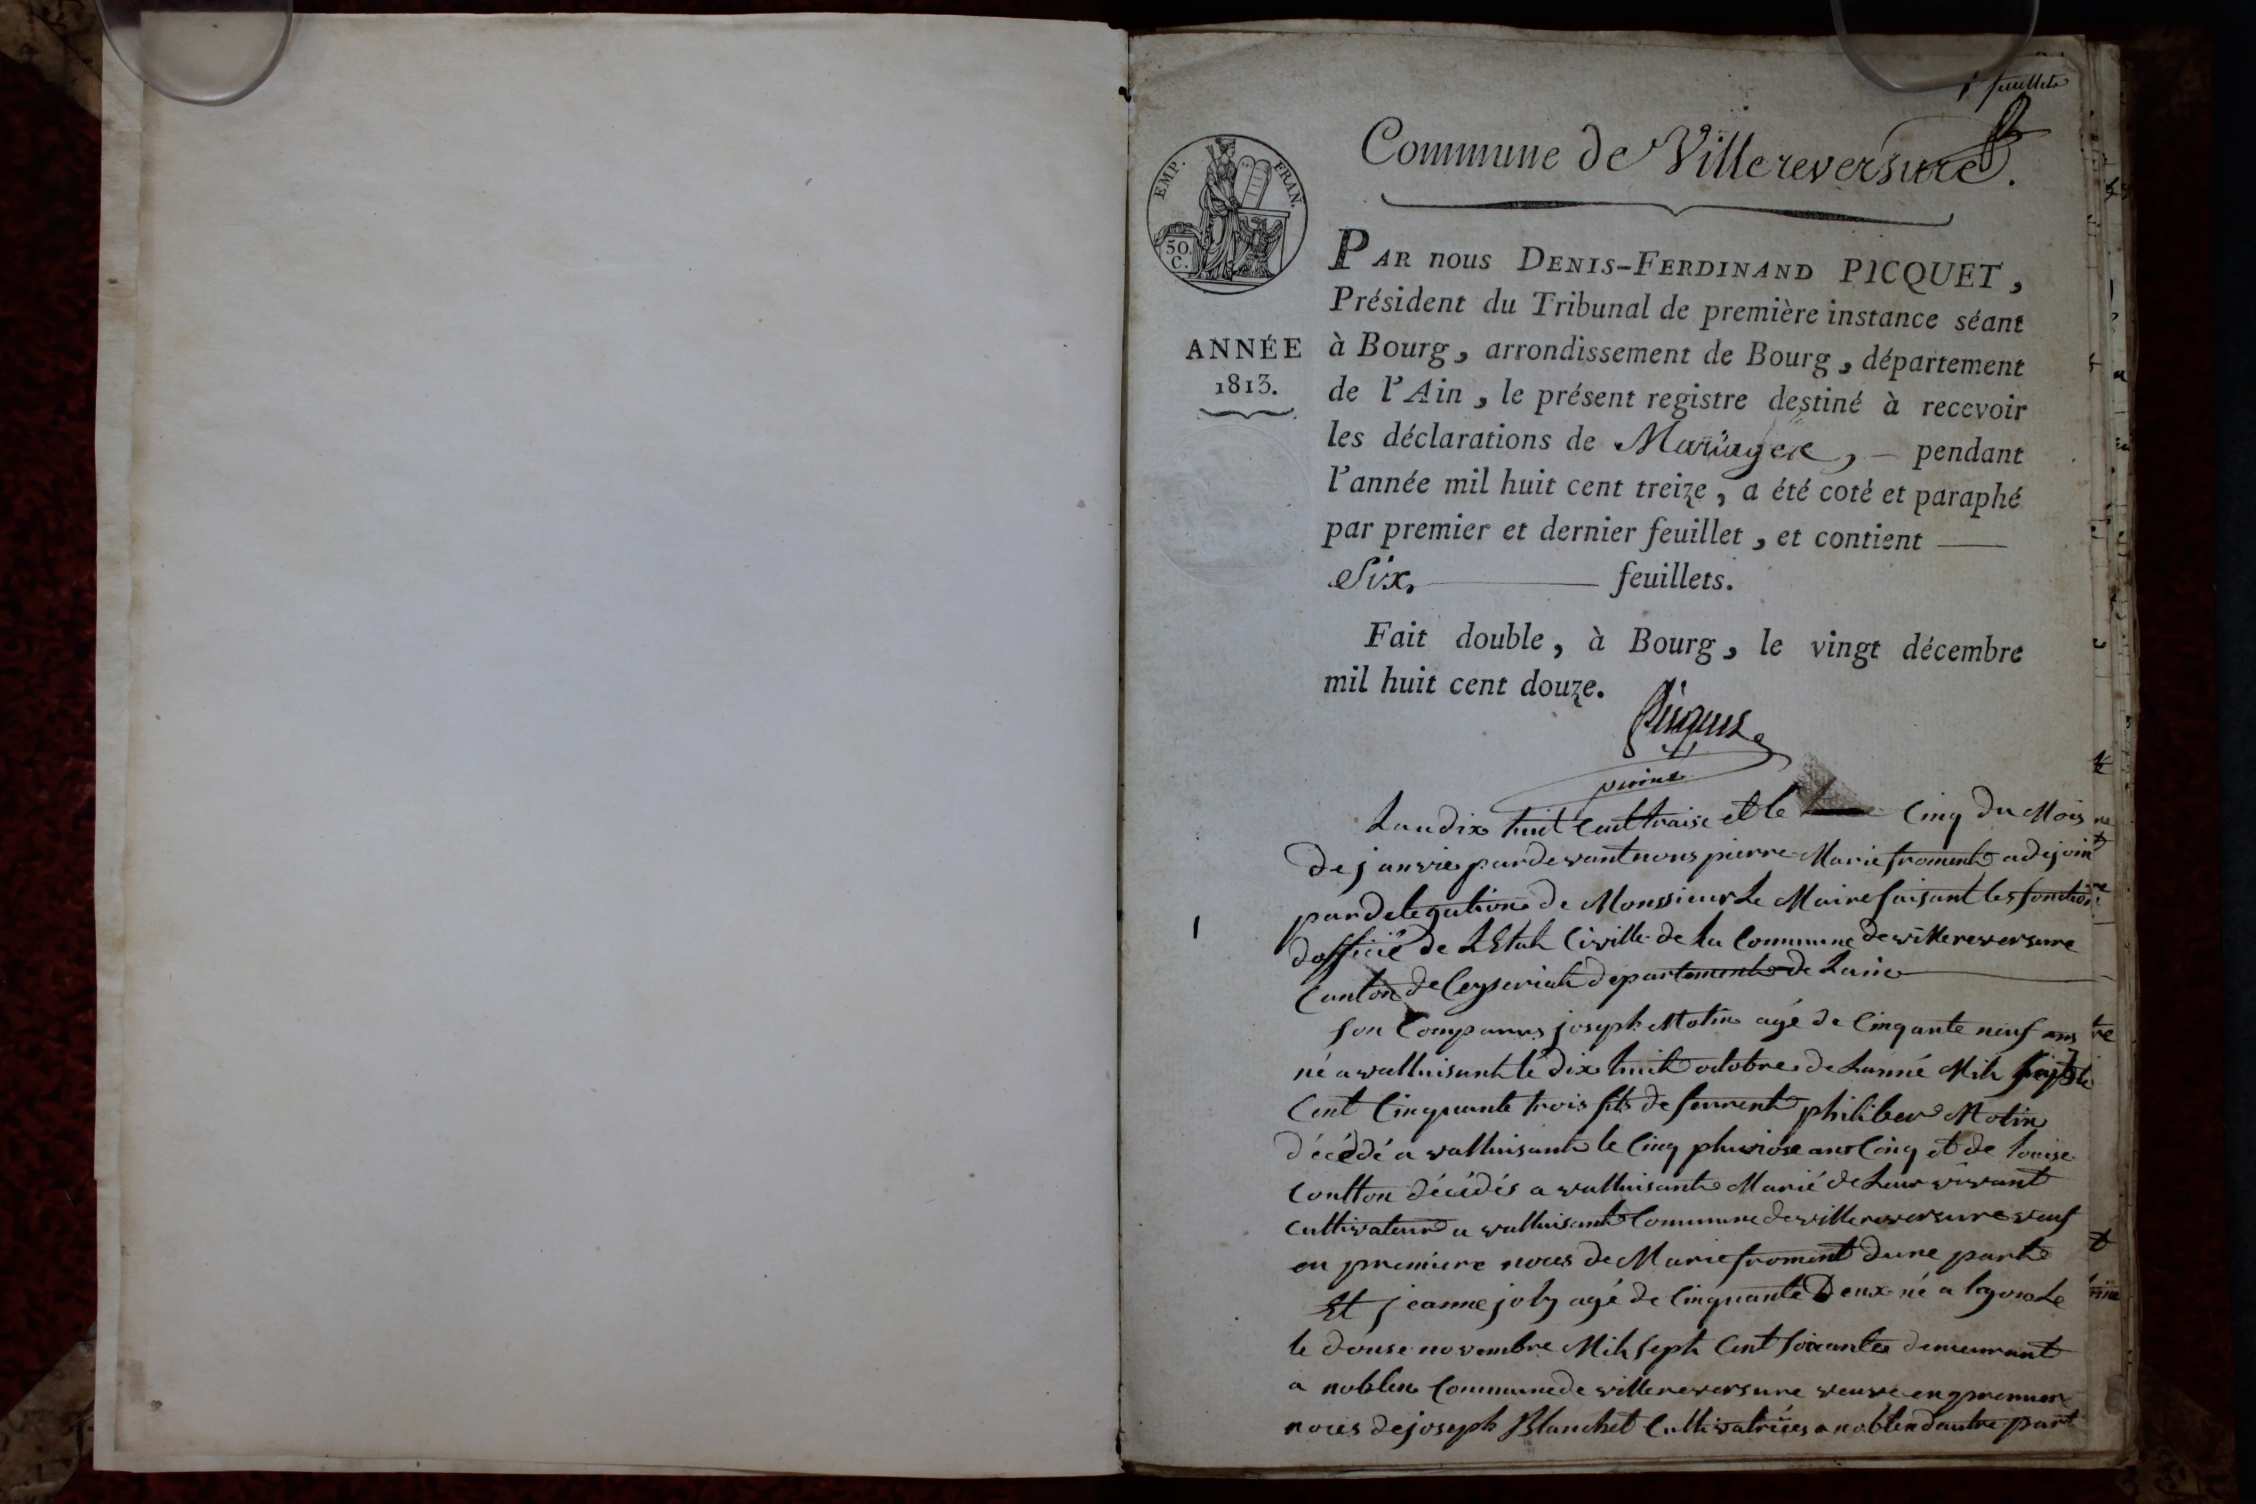 1r feuillet
Commune de Villereversure.
EMP. FRAN.
50 C.
ANNÉE
1813.
PAR nous DENIS-FERDINAND PICQUET,
Président du Tribunal de première instance séant
à Bourg, arrondissement de Bourg, département
de l'Ain, le présent registre destiné à recevoir
les déclarations de Mariages, — pendant
l'année mil huit cent treize, a été coté et paraphé
par premier et dernier feuillet, et contient —
Six, — feuillets.
Fait double, à Bourg, le vingt décembre
mil huit cent douze.
Picquet
Lan dix huit Cent traise et le Cinq du Mois
de janvie pardevant nous pierre Marie froment adejoint
par delegation de Monssieur Le Maire faisant les fonction
dofficié de LEtat Civille de La Commune de villereversure
Canton de Ceyseriat departement de Lain
1
son Comparus joseph Motin agé de Cinqante neuf ans
né a valluisant le dix huit octobre de Lanné Mil
Cent Cinquante trois fils de feurent philiber Motin
décédé a valluisant le Cinq pluviose an Cinq et de louise
Coulton décédés a valluisant Marié de Leur vivant
Cultivateur a valluisant Commune de villereversure veuf
en premiere noces de Marie froment dune part
Et jeanne joly agé de Cinquante Deux né a
le douse novembre Mil Sept Cent soixante demeurant
a noblen Commune de villereversure veuve en premier
noces de joseph Blanchet Cultivatrices a noblen dautre part